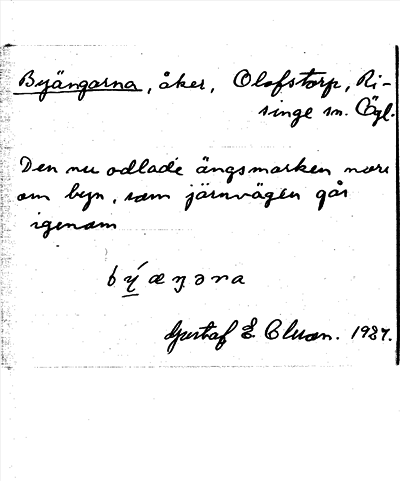 Byängarna, åker, Olofstorp, Ri-
singe sn. Ögl.
Den nu odlade ängsmarken norr
om byn, som järnvägen går
igenom
býæŋəna
Gustaf E
1927.